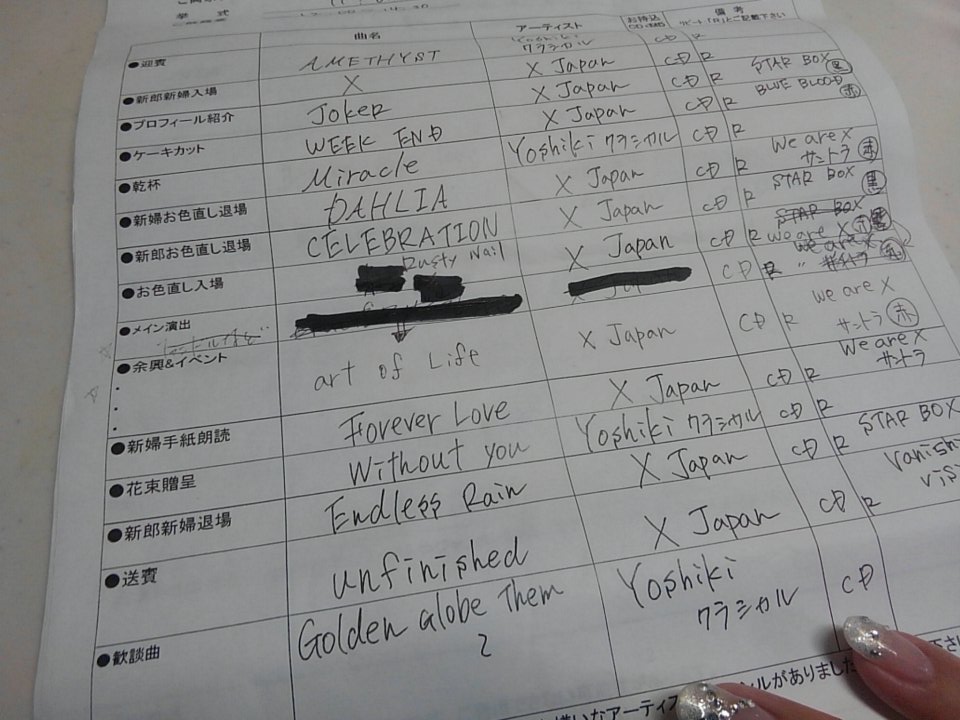 挙 式
曲名 アーティスト お持込 備 考
リピート「R」とご記載下さい
●迎賓 AMETHYST Yoshiki クラシカル CD R
●新郎新婦入場 X X Japan CD R STAR BOX 黒
●プロフィール紹介 Joker X Japan CD R BLUE BLOOD 赤
●ケーキカット WEEK END X Japan CD R
●乾杯 Miracle Yoshiki クラシカル CD R We are X サントラ 赤
●新婦お色直し退場 DAHLIA X Japan CD R STAR BOX 黒
●新郎お色直し退場 CELEBRATION X Japan CD R STAR BOX
●お色直し入場 Rusty Nail X Japan CD R We are X
●メイン演出
●余興&イベント art of Life X Japan CD R We are X サントラ 赤
●新婦手紙朗読 Forever Love X Japan CD R We are X サントラ
●花束贈呈 Without you Yoshiki クラシカル CD R
●新郎新婦退場 Endless Rain X Japan CD R STAR BOX
●送賓 unfinished X Japan CD R
●歓談曲 Golden Globe Them 2 Yoshiki クラシカル CD